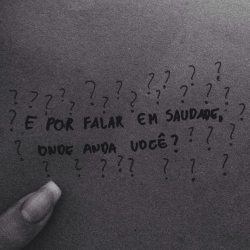 ? ? ? ? ? ? ? ? ?
? ? ? ? ? ? ? ? ?
? E POR FALAR EM SAUDADE, ?
? ONDE ANDA VOCÊ? ? ? ? ?
? ? ? ? ? ? ? ?